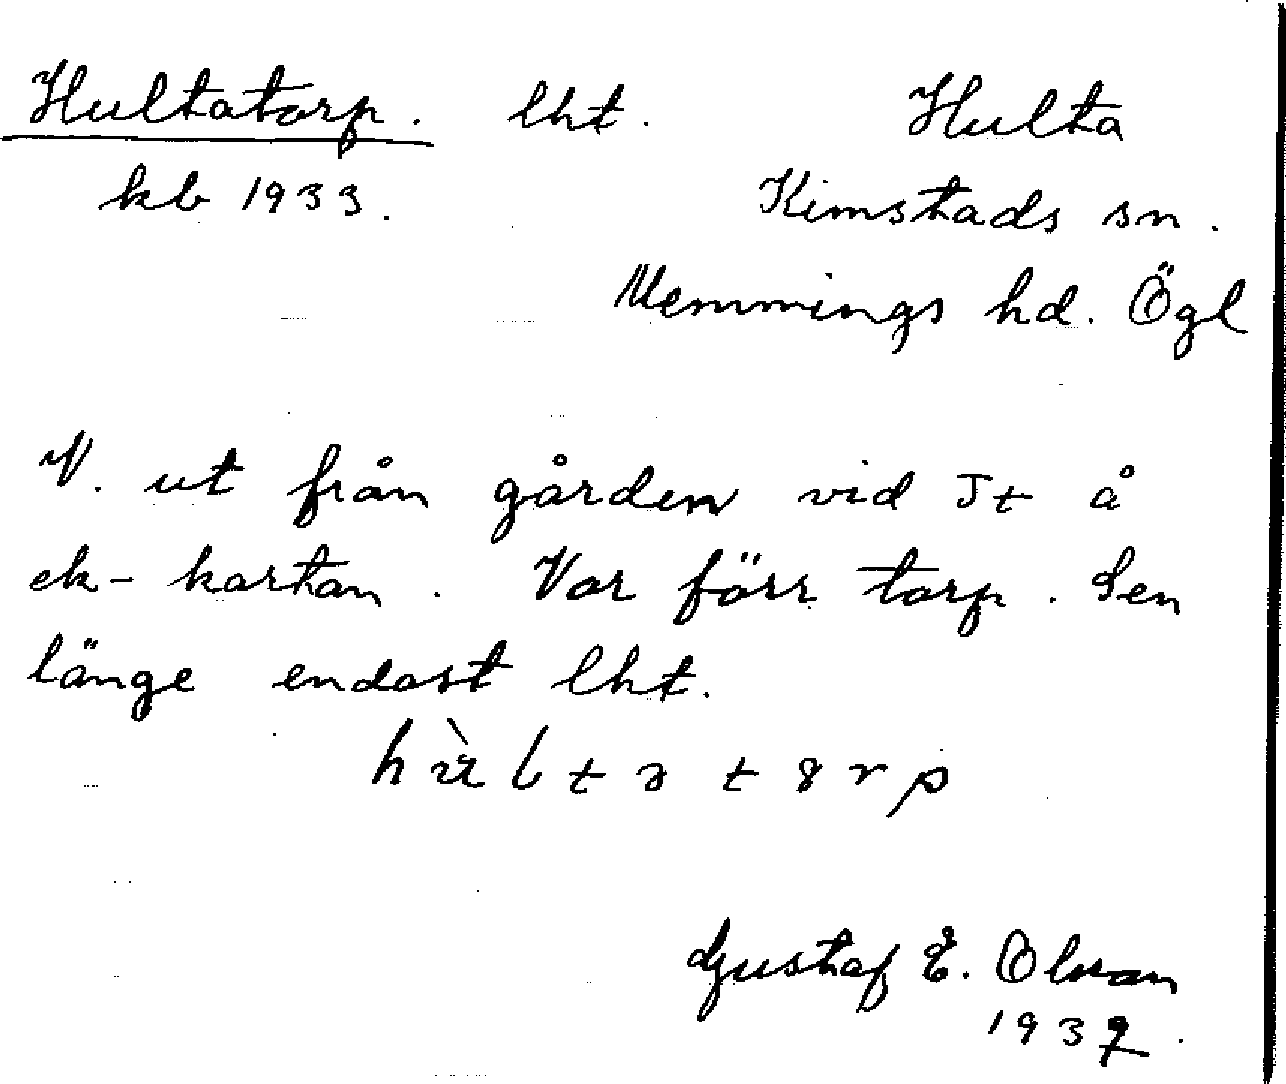 Hultatorp. lht. Hulta
kb 1933. Kimstads sn.
Memmings hd. Ögl
V. ut från gården vid Jt å
ek-kartan. Var förr torp. Sen
länge endast lht.
Gustaf E. Olsson
1937.